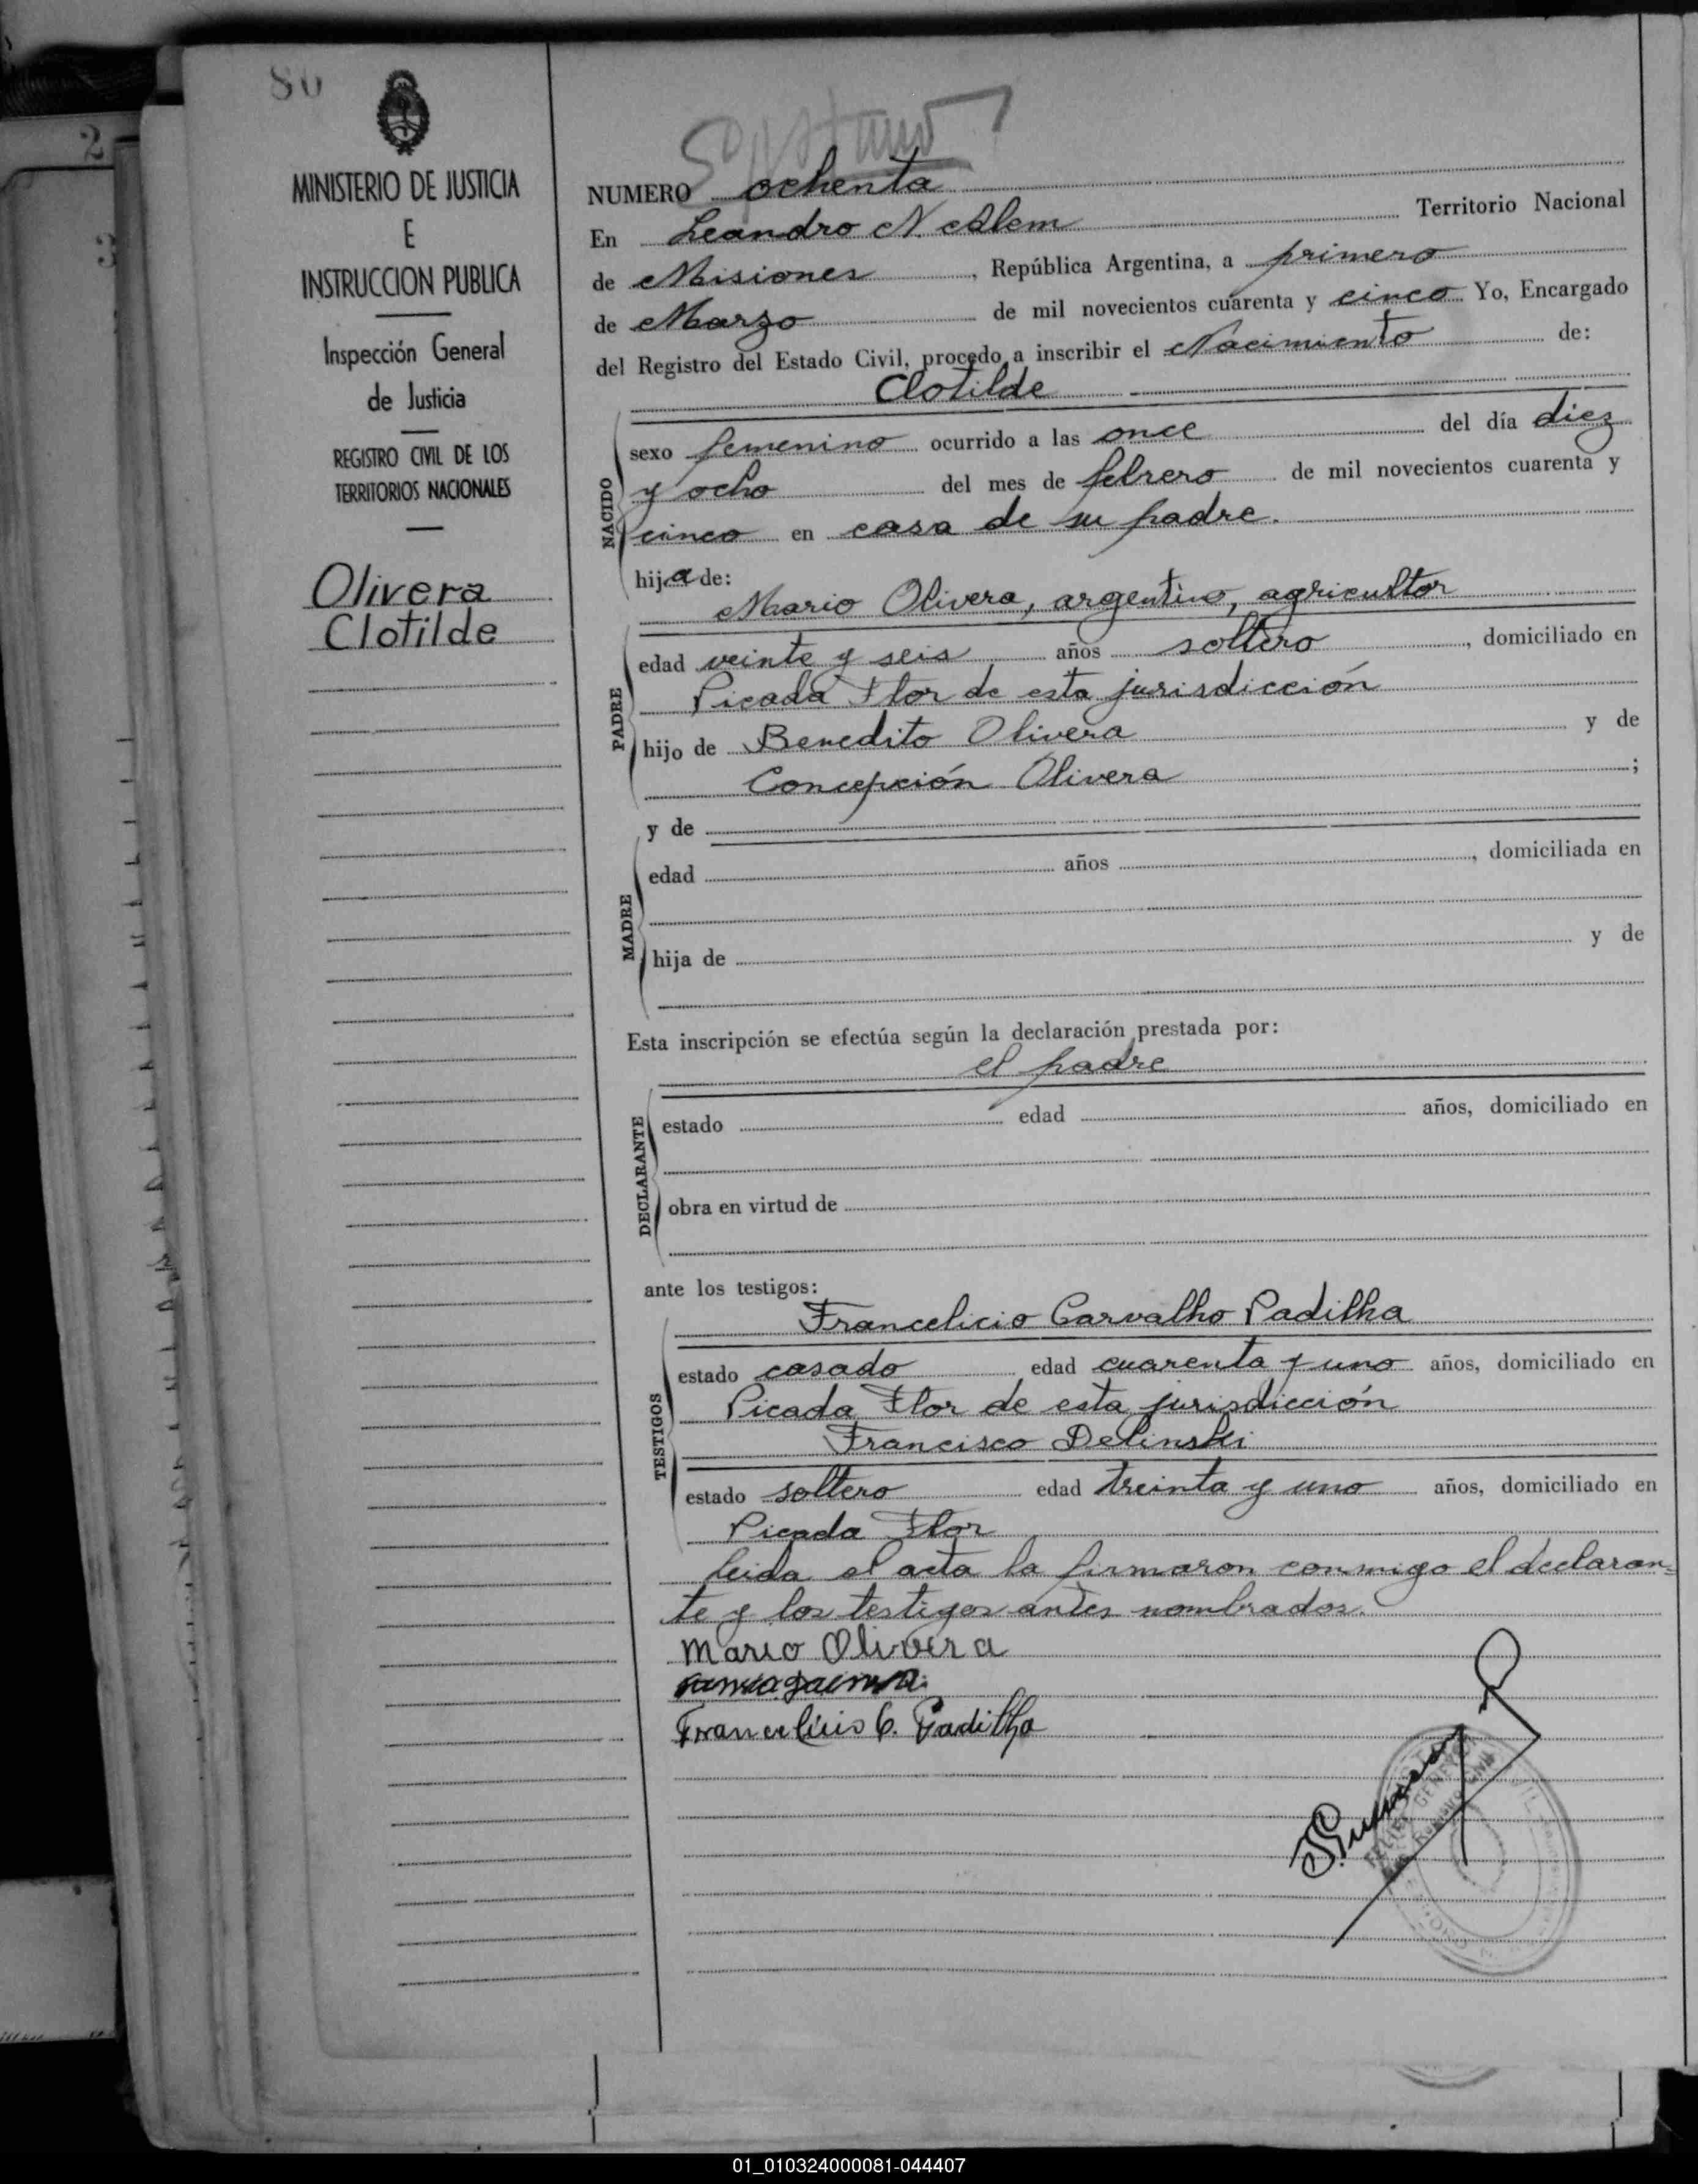 80
MINISTERIO DE JUSTICIA
E
INSTRUCCION PUBLICA
Inspección General
de Justicia
REGISTRO CIVIL DE LOS
TERRITORIOS NACIONALES
Olivera
Clotilde
NUMERO ochenta
En Leandro N. Alem Territorio Nacional
de Misiones, República Argentina, a primero
de Marzo de mil novecientos cuarenta y cinco Yo, Encargado
del Registro del Estado Civil, procedo a inscribir el Nacimiento de:
Clotilde
NACIDO
sexo femenino ocurrido a las once del día diez
y ocho del mes de febrero de mil novecientos cuarenta y
cinco en casa de su padre.
hija de:
Mario Olivera, argentino, agricultor
PADRE
edad veinte y seis años soltero, domiciliado en
Picada Flor de esta jurisdicción
hijo de Benedito Olivera y de
Concepción Olivera;
y de
MADRE
edad años, domiciliada en
hija de y de
Esta inscripción se efectúa según la declaración prestada por:
el padre
DECLARANTE
estado edad años, domiciliado en
obra en virtud de
ante los testigos:
Francelicio Carvalho Padilha
TESTIGOS
estado casado edad cuarenta y uno años, domiciliado en
Picada Flor de esta jurisdicción
Francisco Delinski
estado soltero edad treinta y uno años, domiciliado en
Picada Flor
Leida el acta la firmaron conmigo el declaran=
te y los testigos antes nombrados.
Mario Olivera
Francelicio C. Padilha
01_010324000081-044407